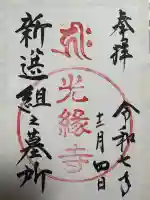 奉拝
令和七年
十二月四日
光縁寺
新選組之墓所